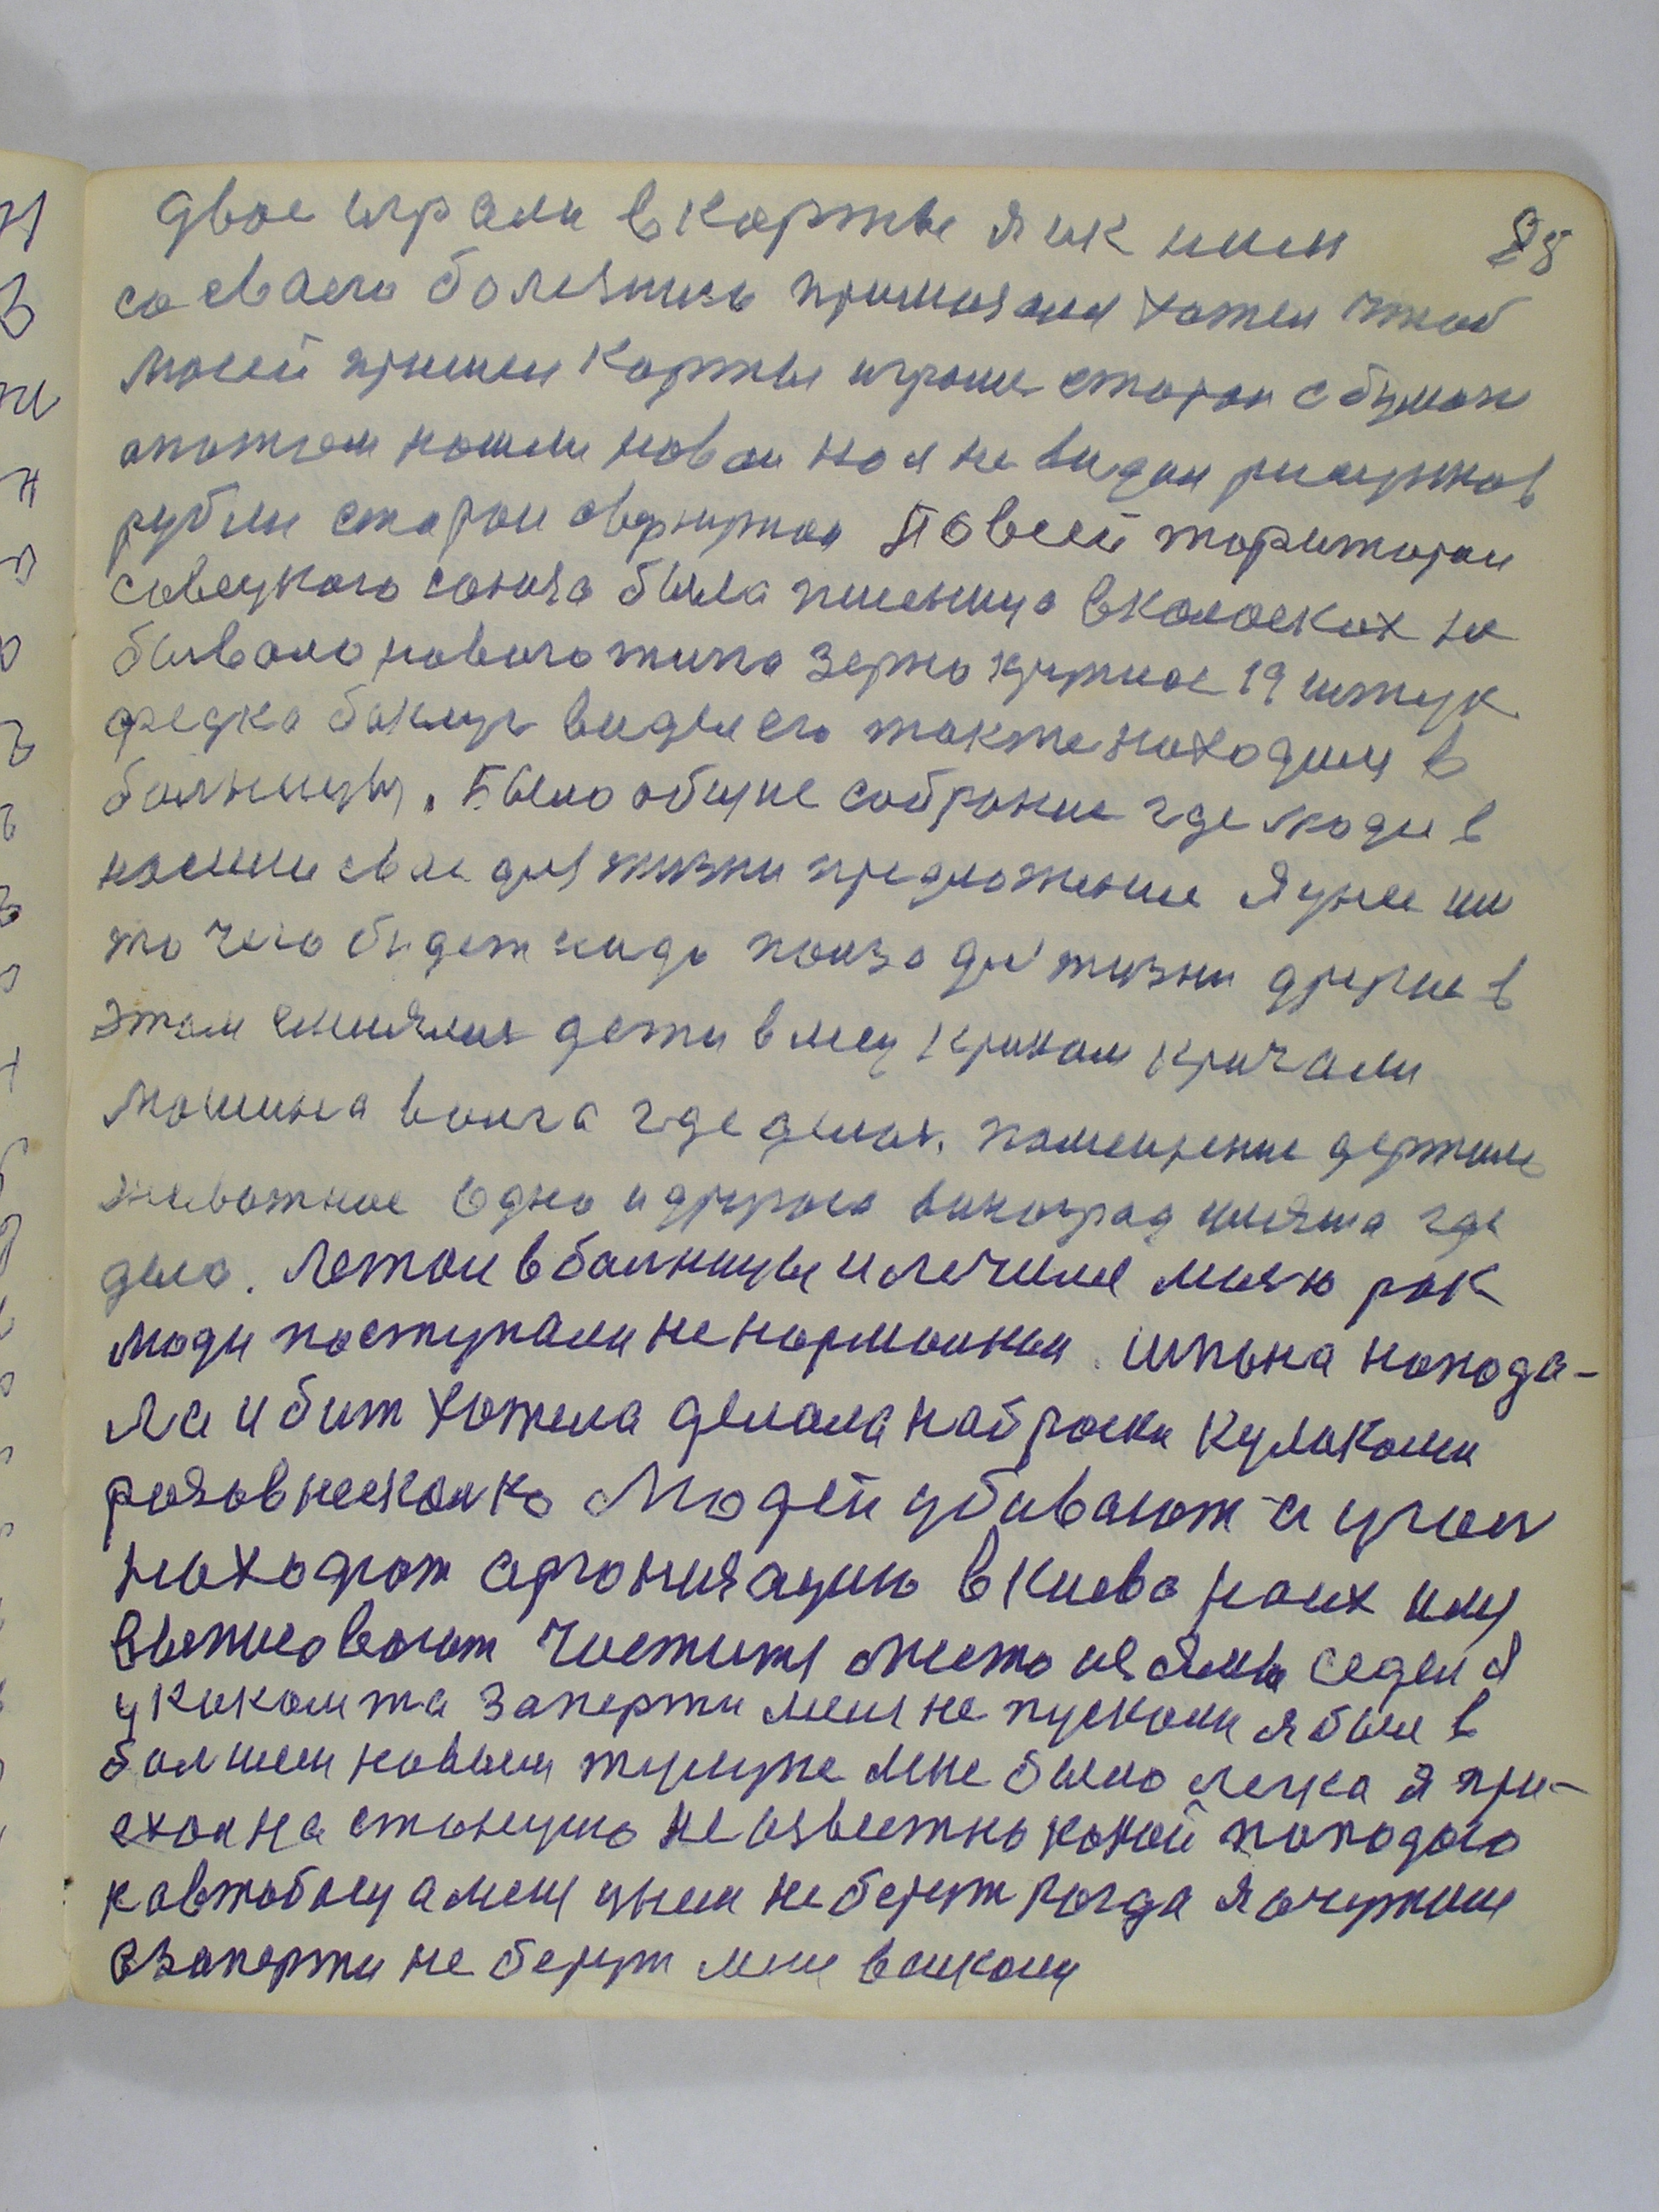 двое играли в карты я ик ним 85
со сваею болезнию примазался хотел чтоб
моей пришли карты играли старои с бумаги
апотом нашли новаи но я не видал рисунков
рубли старои Повсей ториторои
совецкого союза была пшеница вколосках не
бывало нового типа зерно крупное 19 штук
федка баклуг видел его также находили в
болницы. Было общие собрание где люди в
носили свае для жизни предложение Я
то чего будет полза для жизни другие в
этом дети в криком кричали
машина волга где делал. помещение держит
животное одно идругое виноград где
дело. Летаи вболницы илечился маяю рак
люди поступали не нормалныи. шпана напода-
ла и бит хотела делала наброски кулаками
разов несколко Людей убивают а угол
находют аргонизацию вкиева ноих
чистить место из ямы седел я
заперти меня не пускали я был в
болшем новым тулупе мне было легка я при-
ехал на станцию не известно какой поподаю
к автобосу а меня унем не берут когда я очутился
взаперти не берут мня